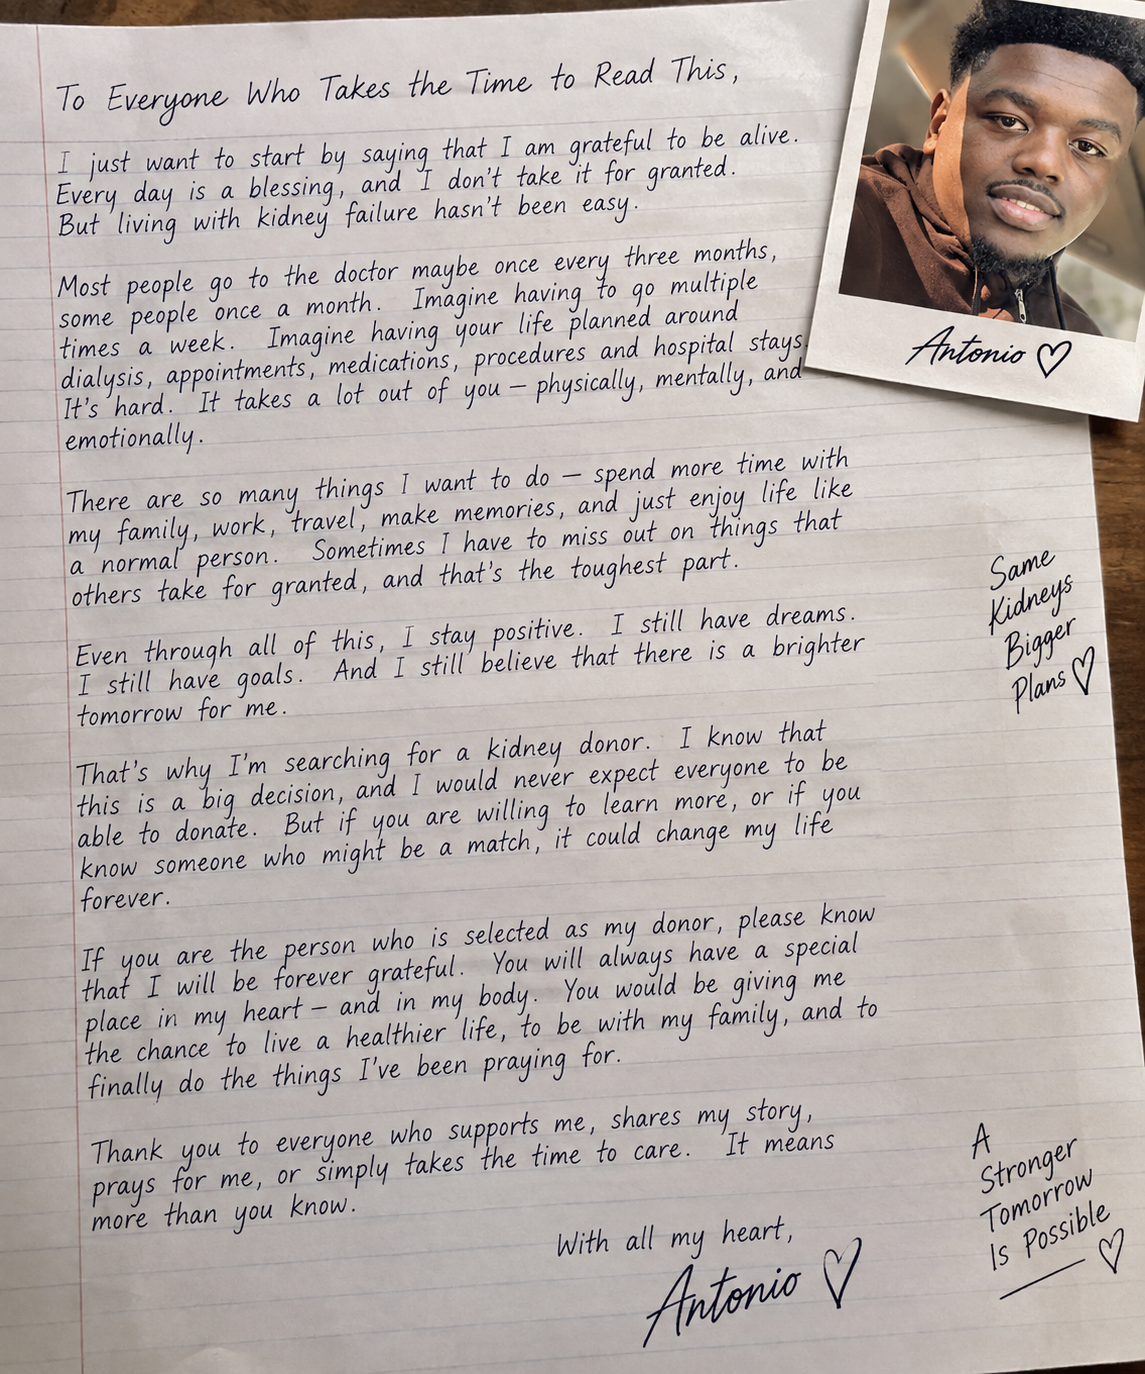 To Everyone Who Takes the Time to Read This,
I just want to start by saying that I am grateful to be alive.
Every day is a blessing, and I don't take it for granted.
But living with kidney failure hasn't been easy.
Most people go to the doctor maybe once every three months,
some people once a month. Imagine having to go multiple
times a week. Imagine having your life planned around
dialysis, appointments, medications, procedures and hospital stays
It's hard. It takes a lot out of you – physically, mentally, and
emotionally.
There are so many things I want to do – spend more time with
my family, work, travel, make memories, and just enjoy life like
a normal person. Sometimes I have to miss out on things that
others take for granted, and that's the toughest part.
Even through all of this, I stay positive. I still have dreams.
I still have goals. And I still believe that there is a brighter
tomorrow for me.
That's why I'm searching for a kidney donor. I know that
this is a big decision, and I would never expect everyone to be
able to donate. But if you are willing to learn more, or if you
know someone who might be a match, it could change my life
forever.
If you are the person who is selected as my donor, please know
that I will be forever grateful. You will always have a special
place in my heart – and in my body. You would be giving me
the chance to live a healthier life, to be with my family, and to
finally do the things I've been praying for.
Thank you to everyone who supports me, shares my story,
prays for me, or simply takes the time to care. It means
more than you know.
With all my heart,
Antonio ♡
Antonio ♡
Same
Kidneys
Bigger
Plans ♡
A
Stronger
Tomorrow
Is Possible
♡